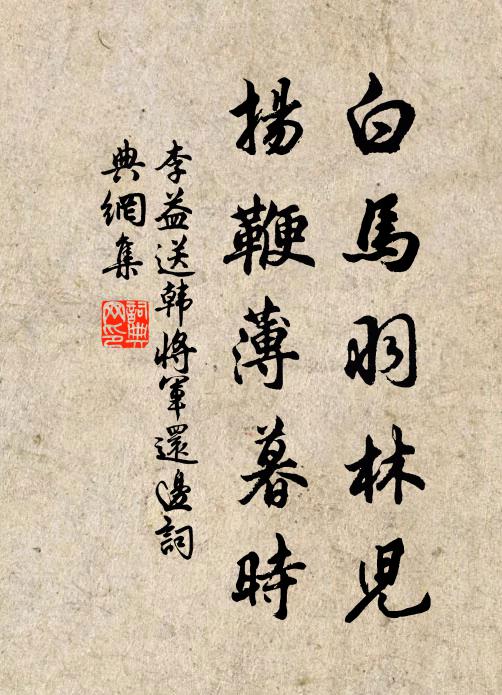 白馬羽林兒
揚鞭薄暮時
李益送韩將軍還邊詞
典網集
詞典網印